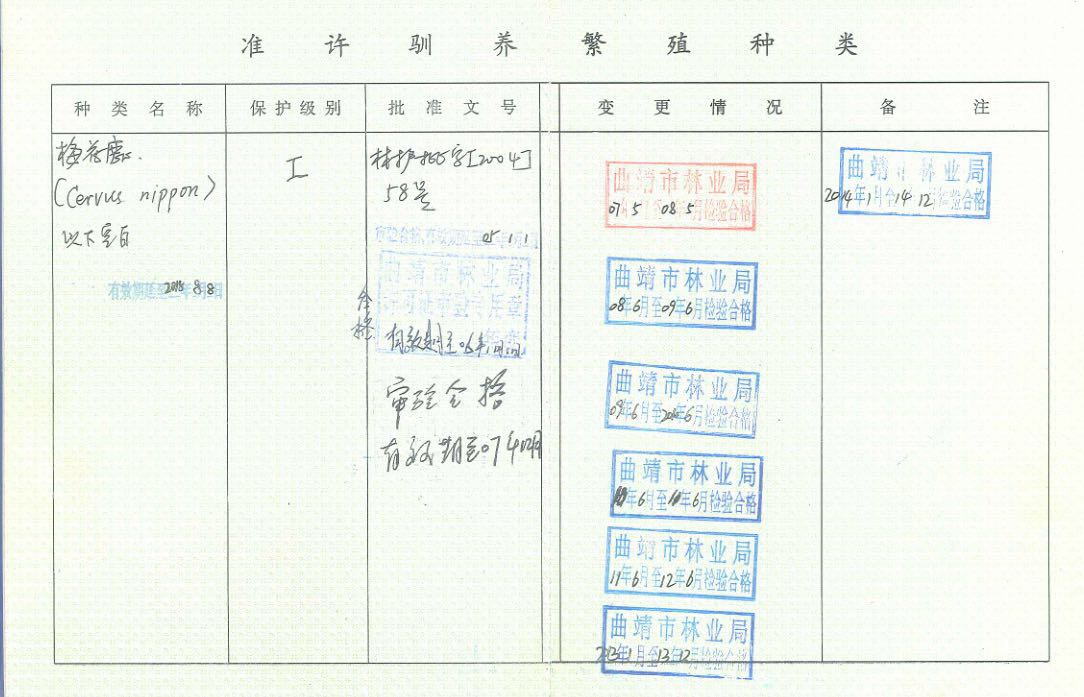 准许驯养繁殖种类
种类名称 保护级别 批准文号 变更情况 备注
梅花鹿.
(Cervus nippon)
以下空白
有效期延至 2015 8 8
I
林护 字[2004]
58号
05 1 1
曲靖市林业局
许可证审验专用章
合格
有效期至06年
审验合格
有效期至07年 月
曲靖市林业局
07 5 08 5 月检验合格
曲靖市林业局
08年6月至09年6月检验合格
曲靖市林业局
09年6月至2010年6月检验合格
曲靖市林业局
10年6月至11年6月检验合格
曲靖市林业局
11年6月至12年6月检验合格
曲靖市林业局
2013年1月至13年12月检验合格
曲靖市林业局
2014年1月至14 12月检验合格